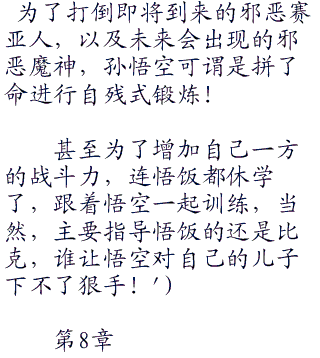 为了打倒即将到来的邪恶赛
亚人，以及未来会出现的邪
恶魔神，孙悟空可谓是拼了
命进行自残式锻炼！
甚至为了增加自己一方
的战斗力，连悟饭都休学
了，跟着悟空一起训练，当
然，主要指导悟饭的还是比
克，谁让悟空对自己的儿子
下不了狠手！′)
第8章